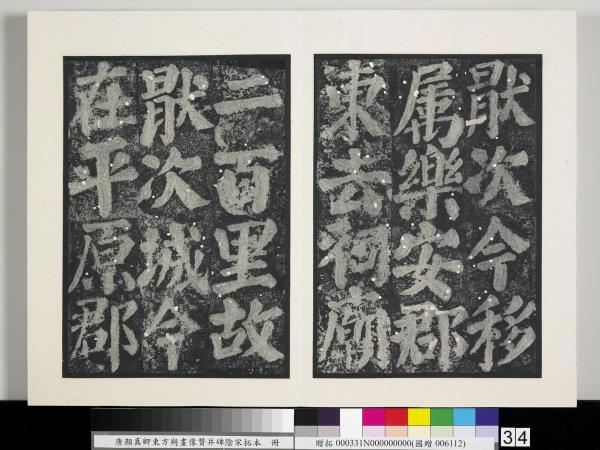 猒次今移
属樂安郡
東去祠廟
二百里故
猒次城今
在平原郡
唐顏真卿東方朔畫像贊并碑陰宋拓本　冊
贈拓 000331N000000000(國贈 006112)
34